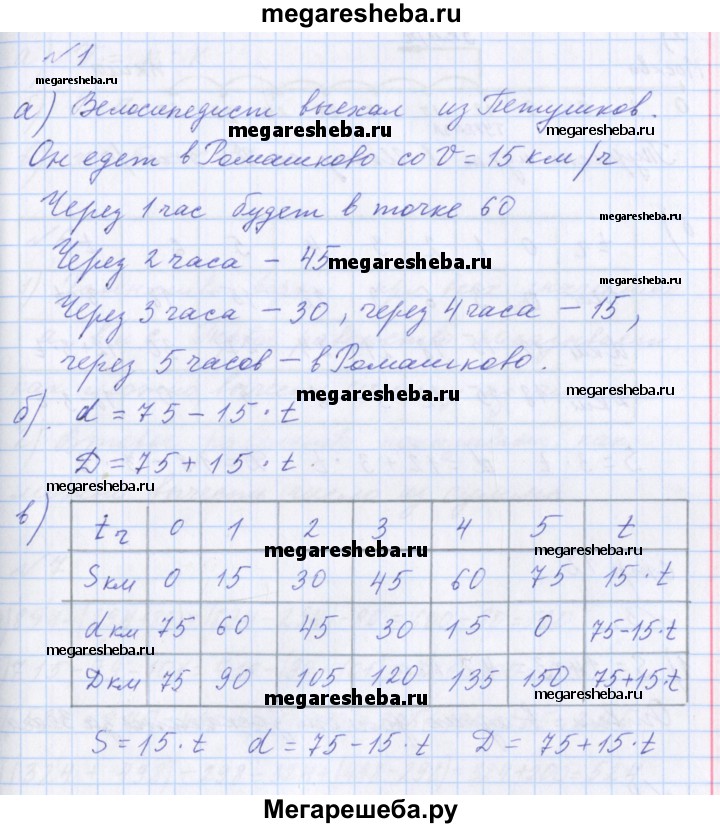 megaresheba.ru
№ 1
megaresheba.ru
а) Велосипедист выехал из Петушков.
megaresheba.ru megaresheba.ru
Он едет в Ромашково со v = 15 км/ч
Через 1 час будет в точке 60
megaresheba.ru
Через 2 часа – 45
megaresheba.ru megaresheba.ru
Через 3 часа – 30, через 4 часа – 15,
через 5 часов – в Ромашково.
megaresheba.ru megaresheba.ru
б). d = 75 – 15 · t
D = 75 + 15 · t.
megaresheba.ru
в)
t ч 0 1 2 3 4 5 t
megaresheba.ru megaresheba.ru
S км 0 15 30 45 60 75 15 · t
d км 75 60 45 30 15 0 75-15·t
megaresheba.ru
D км 75 90 105 120 135 150 75+15·t
megaresheba.ru megaresheba.ru
S = 15 · t d = 75 – 15 · t D = 75 + 15 · t
Мегарешеба.ру